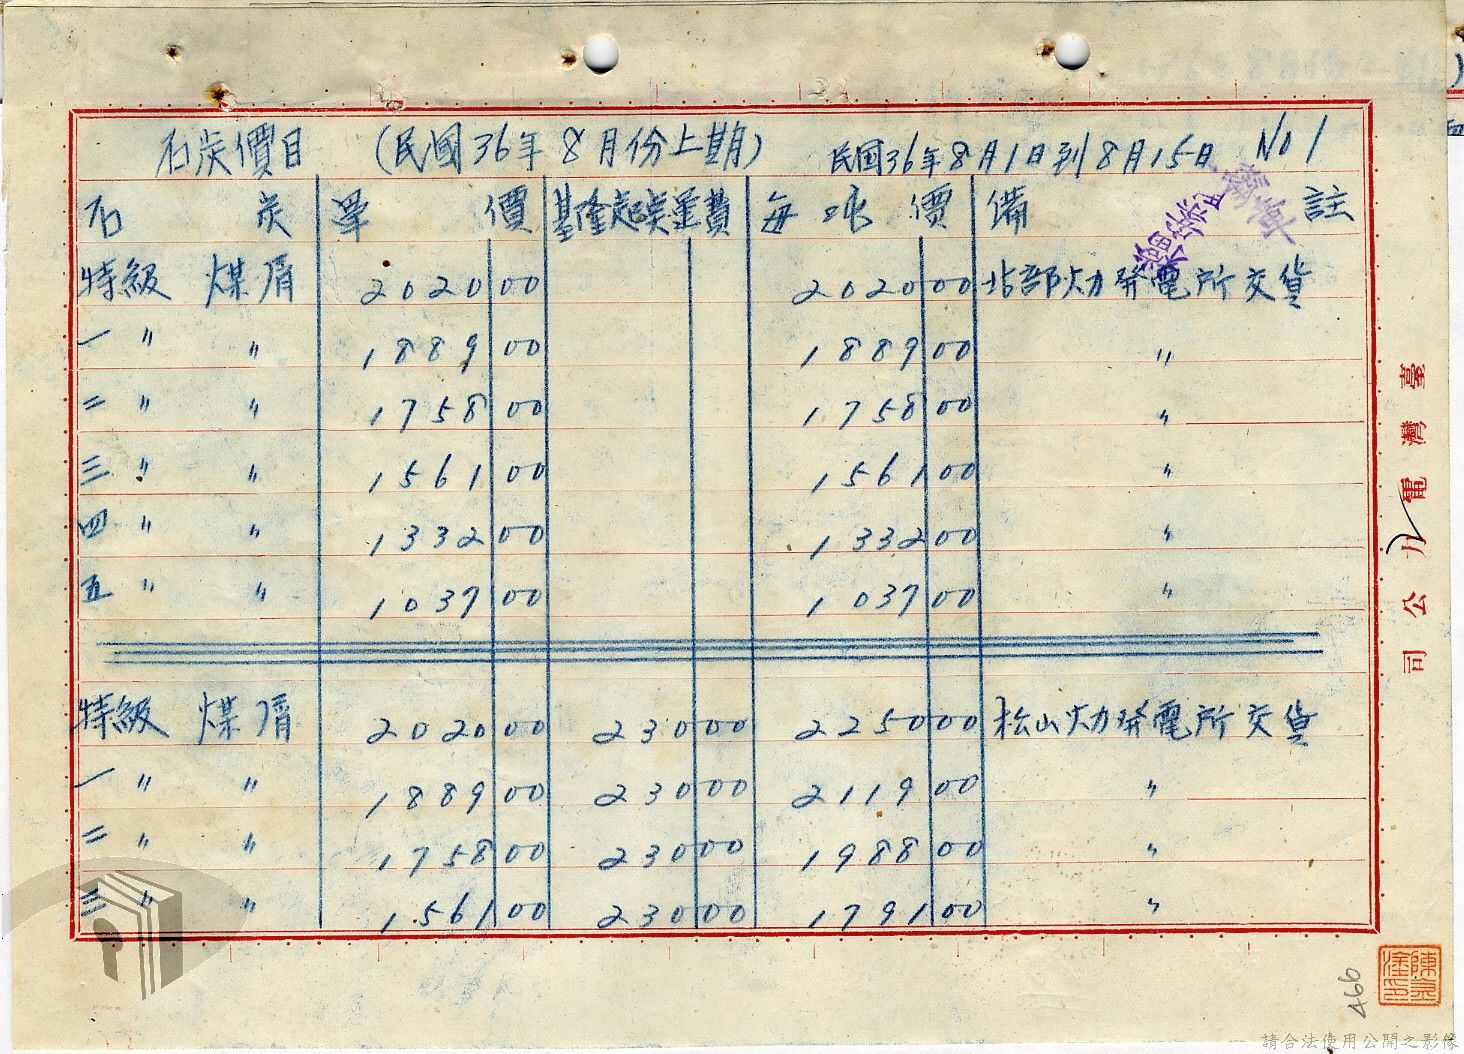 石炭價目 (民國36年8月份上期) 民國36年8月1日到8月15日 No 1
石炭 單價 基隆起炭運費 每吨價 備註
特級 煤屑 2020 00 2020 00 北部火力發電所交貨
一 〃 〃 1889 00 1889 00 〃
二 〃 〃 1758 00 1758 00 〃
三 〃 〃 1561 00 1561 00 〃
四 〃 〃 1332 00 1332 00 〃
五 〃 〃 1037 00 1037 00 〃
特級 煤屑 2020 00 230 00 2250 00 松山火力發電所交貨
一 〃 〃 1889 00 230 00 2119 00 〃
二 〃 〃 1758 00 230 00 1988 00 〃
三 〃 〃 1561 00 230 00 1791 00 〃
臺灣電力公司
466
請合法使用公開之影像